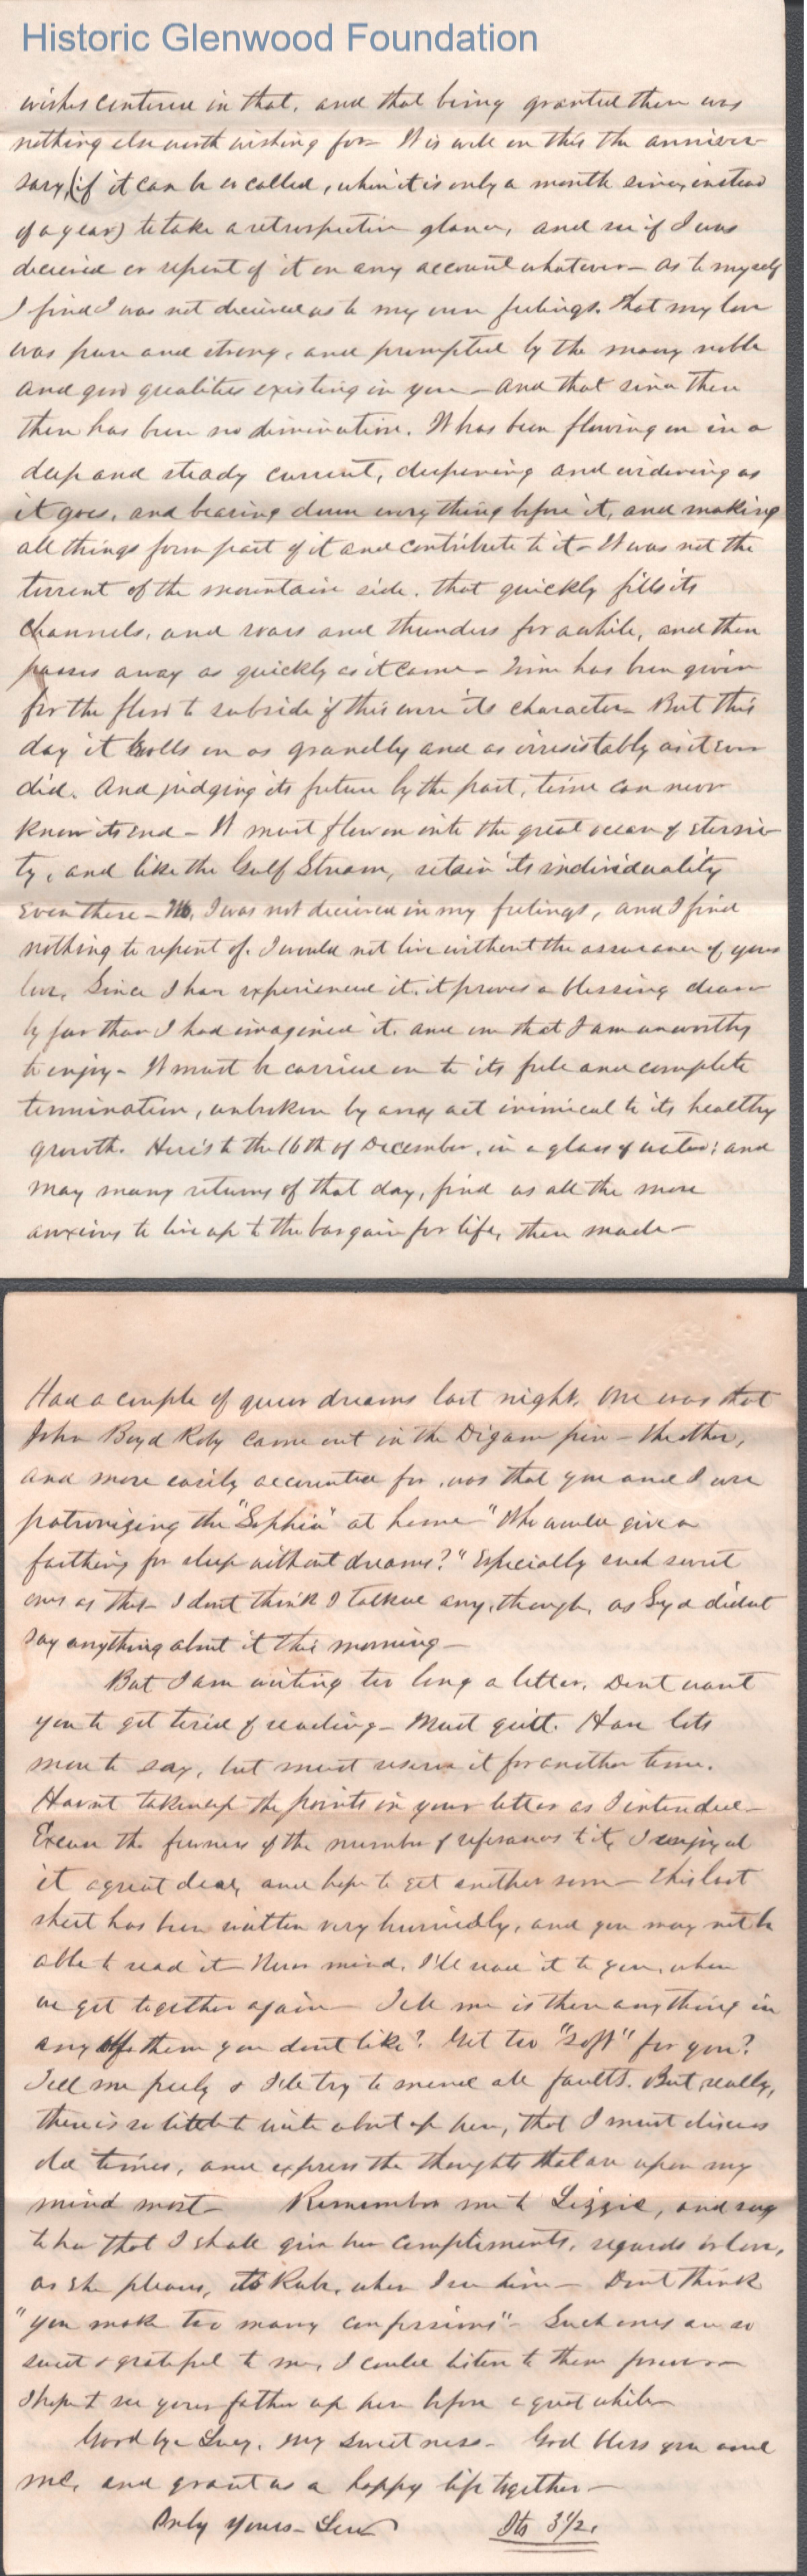 Historic Glenwood Foundation
wishes centered in that, and that being granted there was
nothing else worth wishing for - It is well on this the anniver-
sary, (if it can be so called, when it is only a month since, instead
of a year) to take a retrospective glance, and see if I was
deceived or repent of it on any account whatever - As to myself
I find I was not deceived as to my own feelings, that my love
was pure and strong, and prompted by the many noble
and good qualities existing in you - And that since then
there has been no diminution. It has been flowing on in a
deep and steady current, deepening and widening as
it goes, and bearing down everything before it, and making
all things form part of it and contribute to it - It was not the
torrent of the mountain side, that quickly fills its
channels, and roars and thunders for awhile, and then
passes away as quickly as it came - Time has been given
for the flood to subside if this were its character - But this
day it rolls on as grandly and as irresistably as it ever
did. And judging its future by the past, time can never
know its end - It must flow on into the great ocean of eterni-
ty, and like the Gulf Stream, retain its individuality
even there - No, I was not deceived in my feelings, and I find
nothing to repent of. I would not live without the assurance of your
love. Since I have experienced it, it proves a blessing dearer
by far than I had imagined it, and one that I am unworthy
to enjoy - It must be carried on to its full and complete
termination, unbroken by any act inimical to its healthy
growth. Here's to the 16th of December, in a glass of water; and
may many returns of that day, find us all the more
anxious to live up to the bargain for life, then made -
Had a couple of queer dreams last night. One was that
John Boyd Roby came out in the - The other,
and more easily accounted for, was that you and I were
patronizing the "Sophia" at home - "Who would give a
farthing for sleep without dreams?" Especially such sweet
ones as that - I dont think I talked any, though, as Syd didnt
say anything about it this morning -
But I am writing too long a letter. Dont want
you to get tired of reading - Must quit. Have lots
more to say, but must reserve it for another time.
Havnt taken up the points in your letter as I intended -
Excuse the fewness of the number of references to it, I enjoyed
it a great deal, and hope to get another soon - This last
sheet has been written very hurriedly, and you may not be
able to read it - Never mind, I'll read it to you, when
we get together again - Tell me is there anything in
any of them you dont like? Get too "soft" for you?
Tell me freely & I'll try to mend all faults. But, really,
there is so little to write about up here, that I must discuss
old times, and express the thoughts that are upon my
mind most - Remember me to Lizzie, and say
to her that I shall give her compliments, regards or love,
as she pleases, to Rob, when I see him - Dont think
"you make too many confessions" - Such ones are so
sweet & grateful to me, I could listen to them forever -
I hope to see your father up here before a great while -
Good bye Lucy, my sweetness - God bless you and
me, and grant us a happy life together -
Only yours - Lew Its 3 1/2.